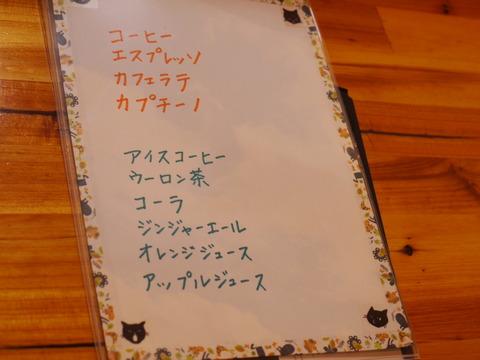 コーヒー
エスプレッソ
カフェラテ
カプチーノ
アイスコーヒー
ウーロン茶
コーラ
ジンジャーエール
オレンジジュース
アップルジュース